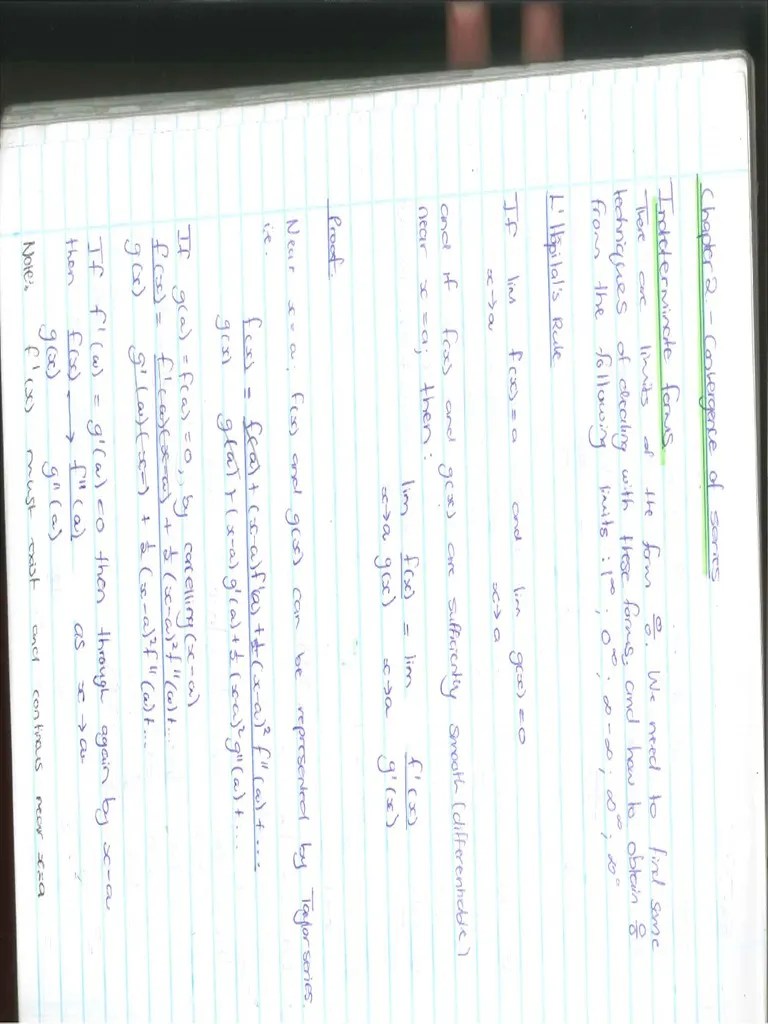 Chapter 2 - Convergence of series
Indeterminate forms
There are limits of the form 0/0. We need to find some
techniques of dealing with these forms, and how to obtain 0/0
from the following limits : 1^∞ ; 0^∞ ; ∞-∞ ; ∞^∞ ; ∞^0
L'Hopital's Rule
If lim f(x)=0 and lim g(x)=0
x→a x→a
and if f(x) and g(x) are sufficiently smooth (differentiable)
near x=a; then:
lim f(x) = lim f'(x)
x→a g(x) x→a g'(x)
Proof
Near x=a; f(x) and g(x) can be represented by Taylor series.
ie.
f(x) = f(a) + (x-a)f'(a) + ½(x-a)² f''(a) + ...
g(x) g(a) + (x-a) g'(a) + ½(x-a)² g''(a) + ...
If g(a) = f(a) = 0, by cancelling (x-a)
f(x) = f'(a)(x-a) + ½(x-a)² f''(a) + ...
g(x) g'(a)(x-) + ½(x-a)² f''(a) + ...
If f'(a) = g'(a) = 0 then through again by x-a
then f(x) → f''(a) as x→a
g(x) g''(a)
Note: f'(x) must exist and continous near x=a